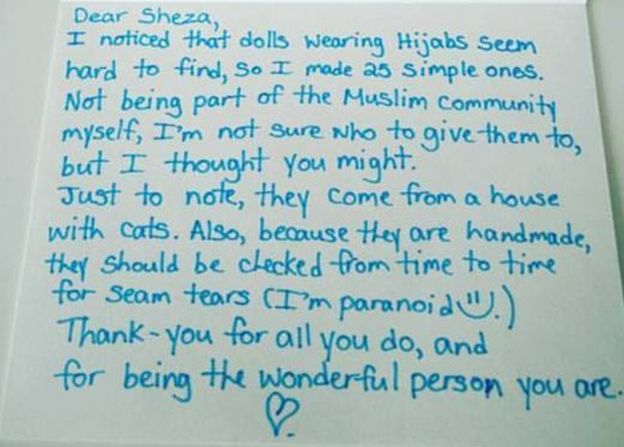 Dear Sheza,
I noticed that dolls wearing Hijabs seem
hard to find, so I made 25 simple ones.
Not being part of the Muslim community
myself, I'm not sure who to give them to,
but I thought you might.
Just to note, they come from a house
with cats. Also, because they are handmade,
they should be checked from time to time
for seam tears (I'm paranoid ".)
Thank-you for all you do, and
for being the wonderful person you are.
♡